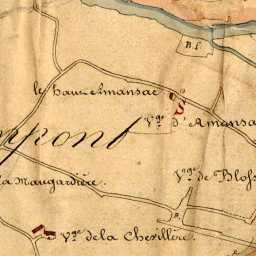 B.f.
le haut Amansac
Vge. d'Amansa
mpont
la Maugardière.
Vge. de Bloss
Vge. de la Chevillère.